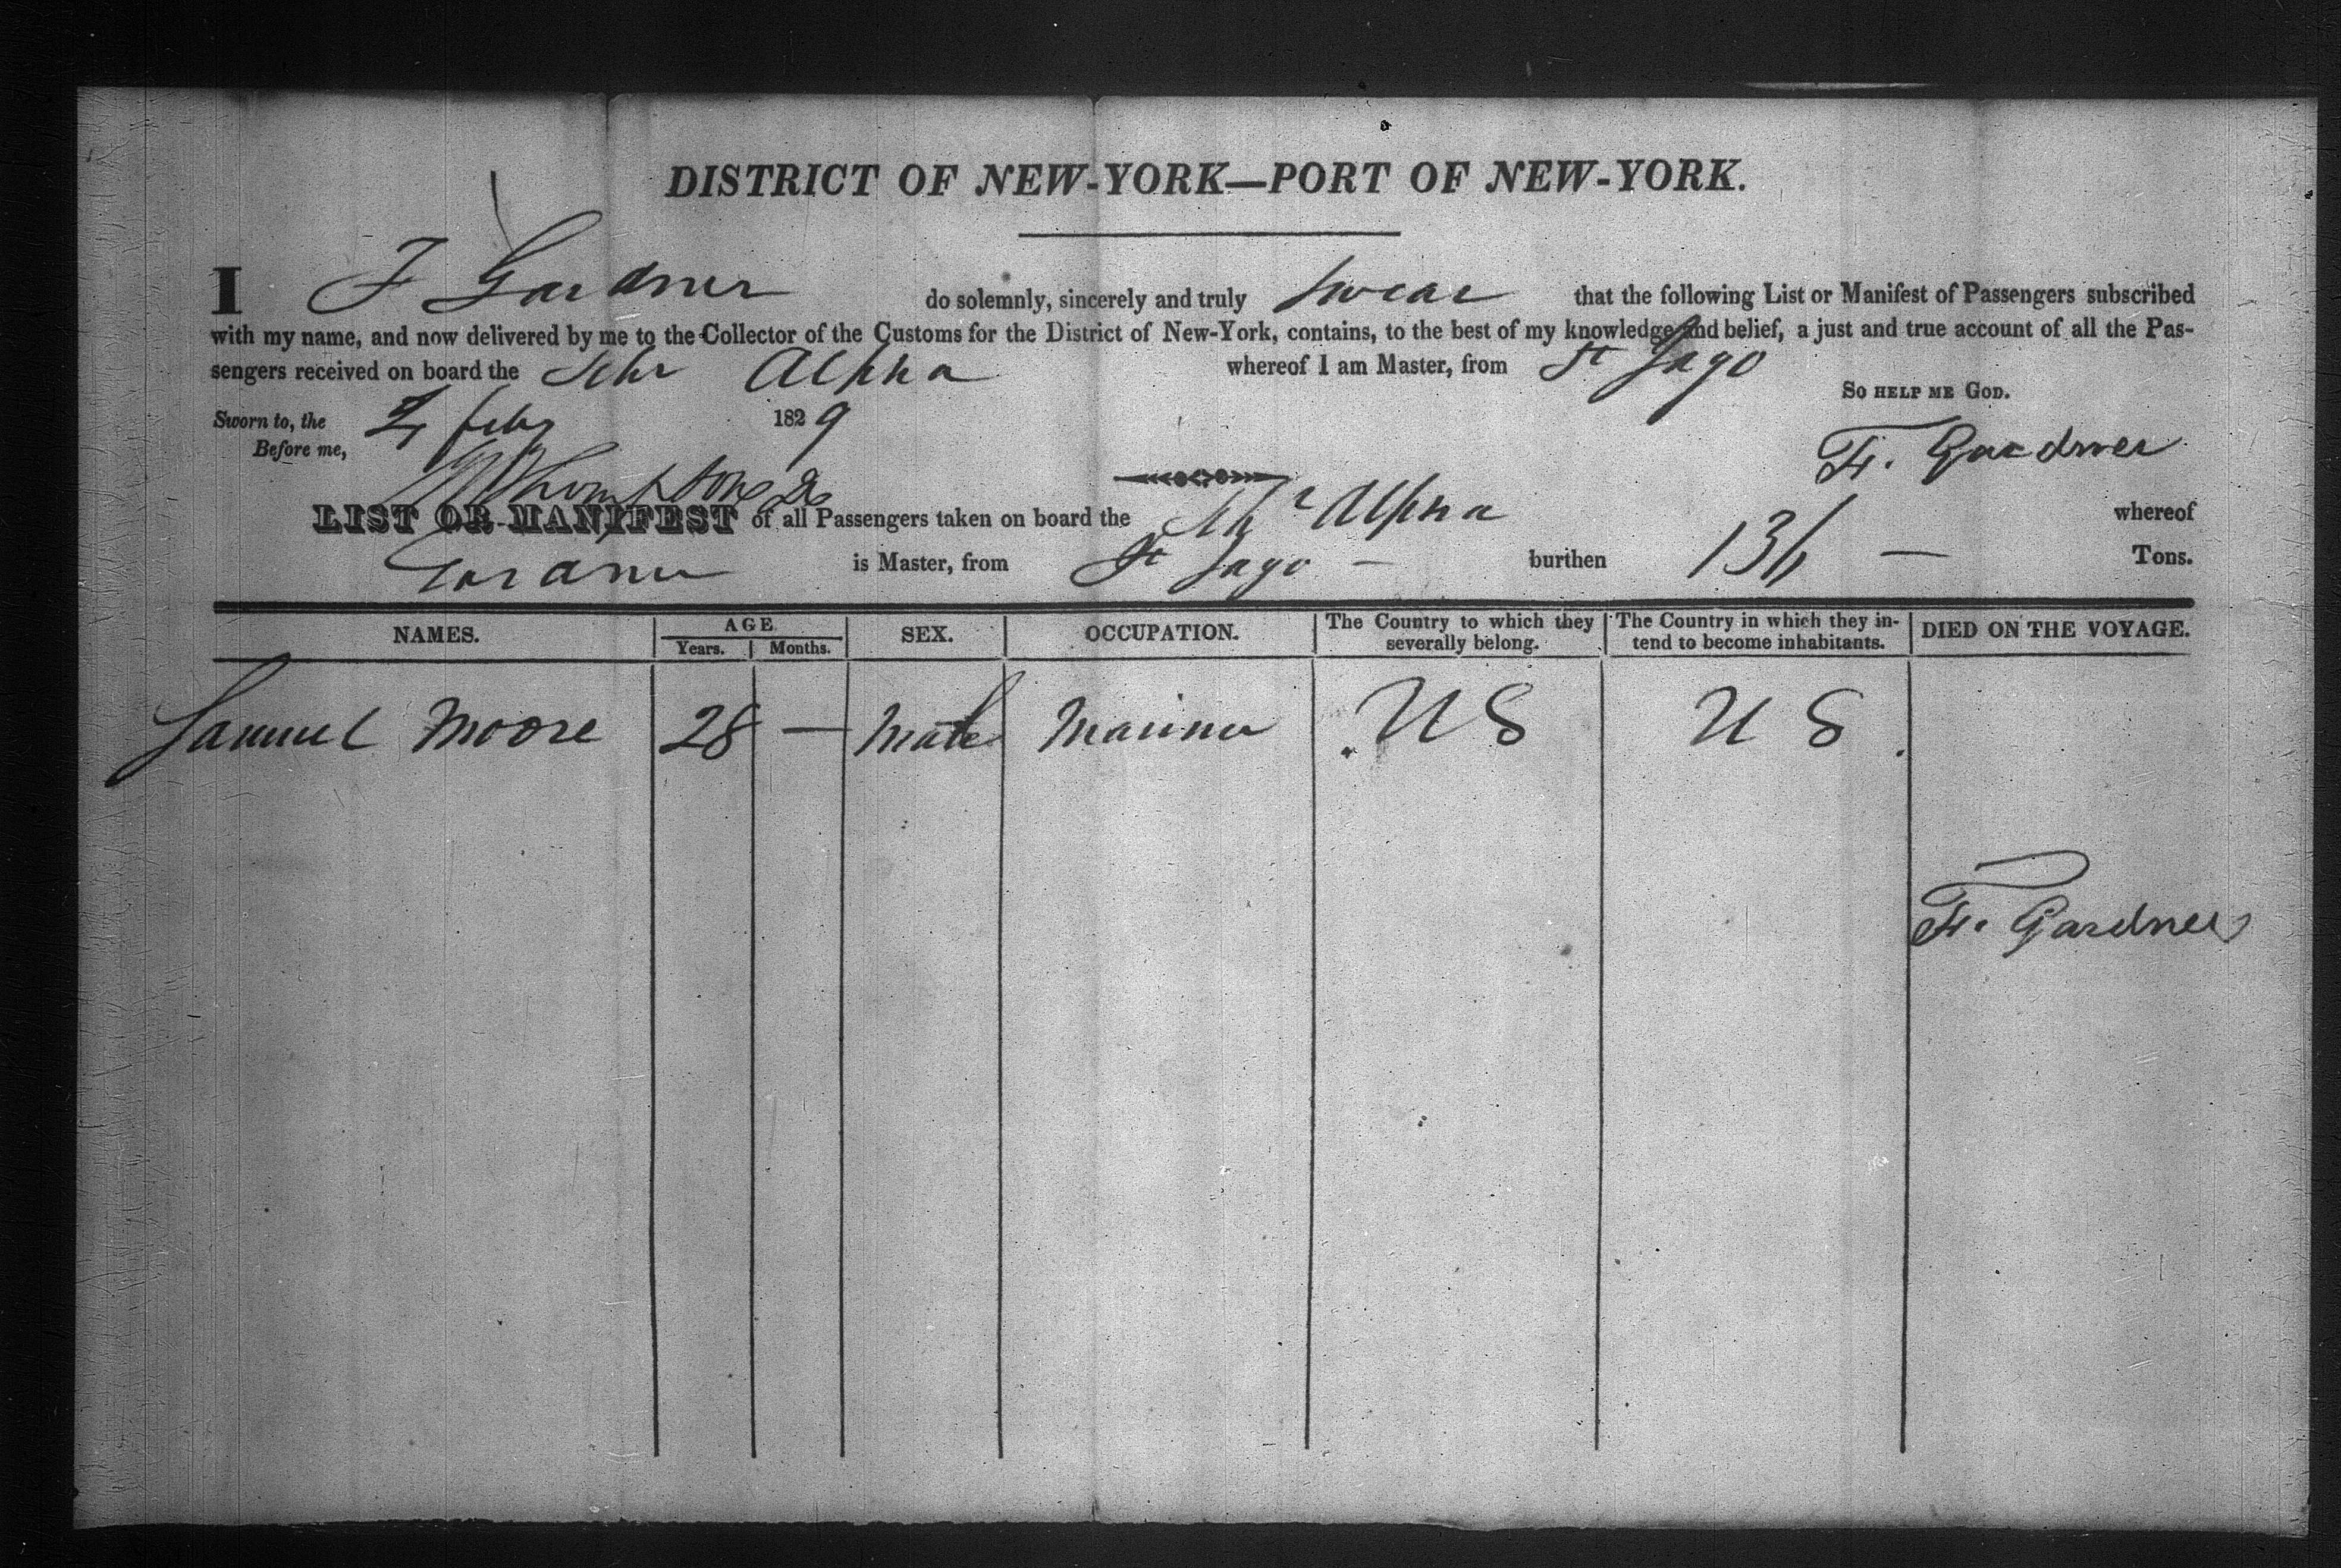 DISTRICT OF NEW-YORK—PORT OF NEW-YORK.
I F Gardner do solemnly, sincerely and truly swear that the following List or Manifest of Passengers subscribed
with my name, and now delivered by me to the Collector of the Customs for the District of New-York, contains, to the best of my knowledge and belief, a just and true account of all the Pas-
sengers received on board the Schr Alpha whereof I am Master, from St Jago
So HELP ME GOD.
Sworn to, the feby 1829
Before me, F. Gardner
LIST OR MANIFEST of all Passengers taken on board the Schr Alpha whereof
Gardner is Master, from St Jago — burthen 136 — Tons.
NAMES. AGE SEX. OCCUPATION. The Country to which they severally belong. The Country in which they in- tend to become inhabitants. DIED ON THE VOYAGE.
Years. Months.
Samuel Moore 28 — Male Mariner U S U S
F. Gardner